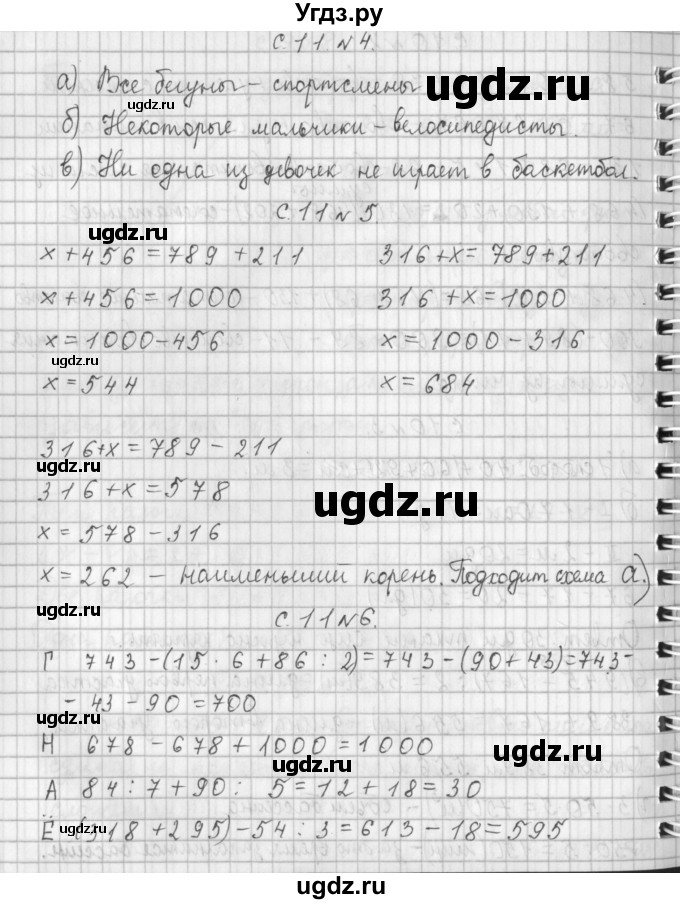 Угдз.ру
с. 11. № 4.
а) Все бегуны – спортсмены
б) Некоторые мальчики – велосипедисты.
в) Ни одна из девочек не играет в баскетбол.
с. 11 № 5
x + 456 = 789 + 211
316 + x = 789 + 211
x + 456 = 1000
316 + x = 1000
x = 1000 – 456
x = 1000 – 316
x = 544
x = 684
316 + x = 789 – 211
316 + x = 578
x = 578 – 316
x = 262 – наименьший корень. Подходит схема а.)
с. 11 № 6.
Г 743 – (15 · 6 + 86 : 2) = 743 – (90 + 43) = 743 –
– 43 – 90 = 700
Н 678 – 678 + 1000 = 1000
А 84 : 7 + 90 : 5 = 12 + 18 = 30
Ё (318 + 295) – 54 : 3 = 613 – 18 = 595
ugdz.ru
ugdz.ru
ugdz.ru
ugdz.ru
ugdz.ru
ugdz.ru
ugdz.ru
ugdz.ru
ugdz.ru
ugdz.ru
ugdz.ru
ugdz.ru